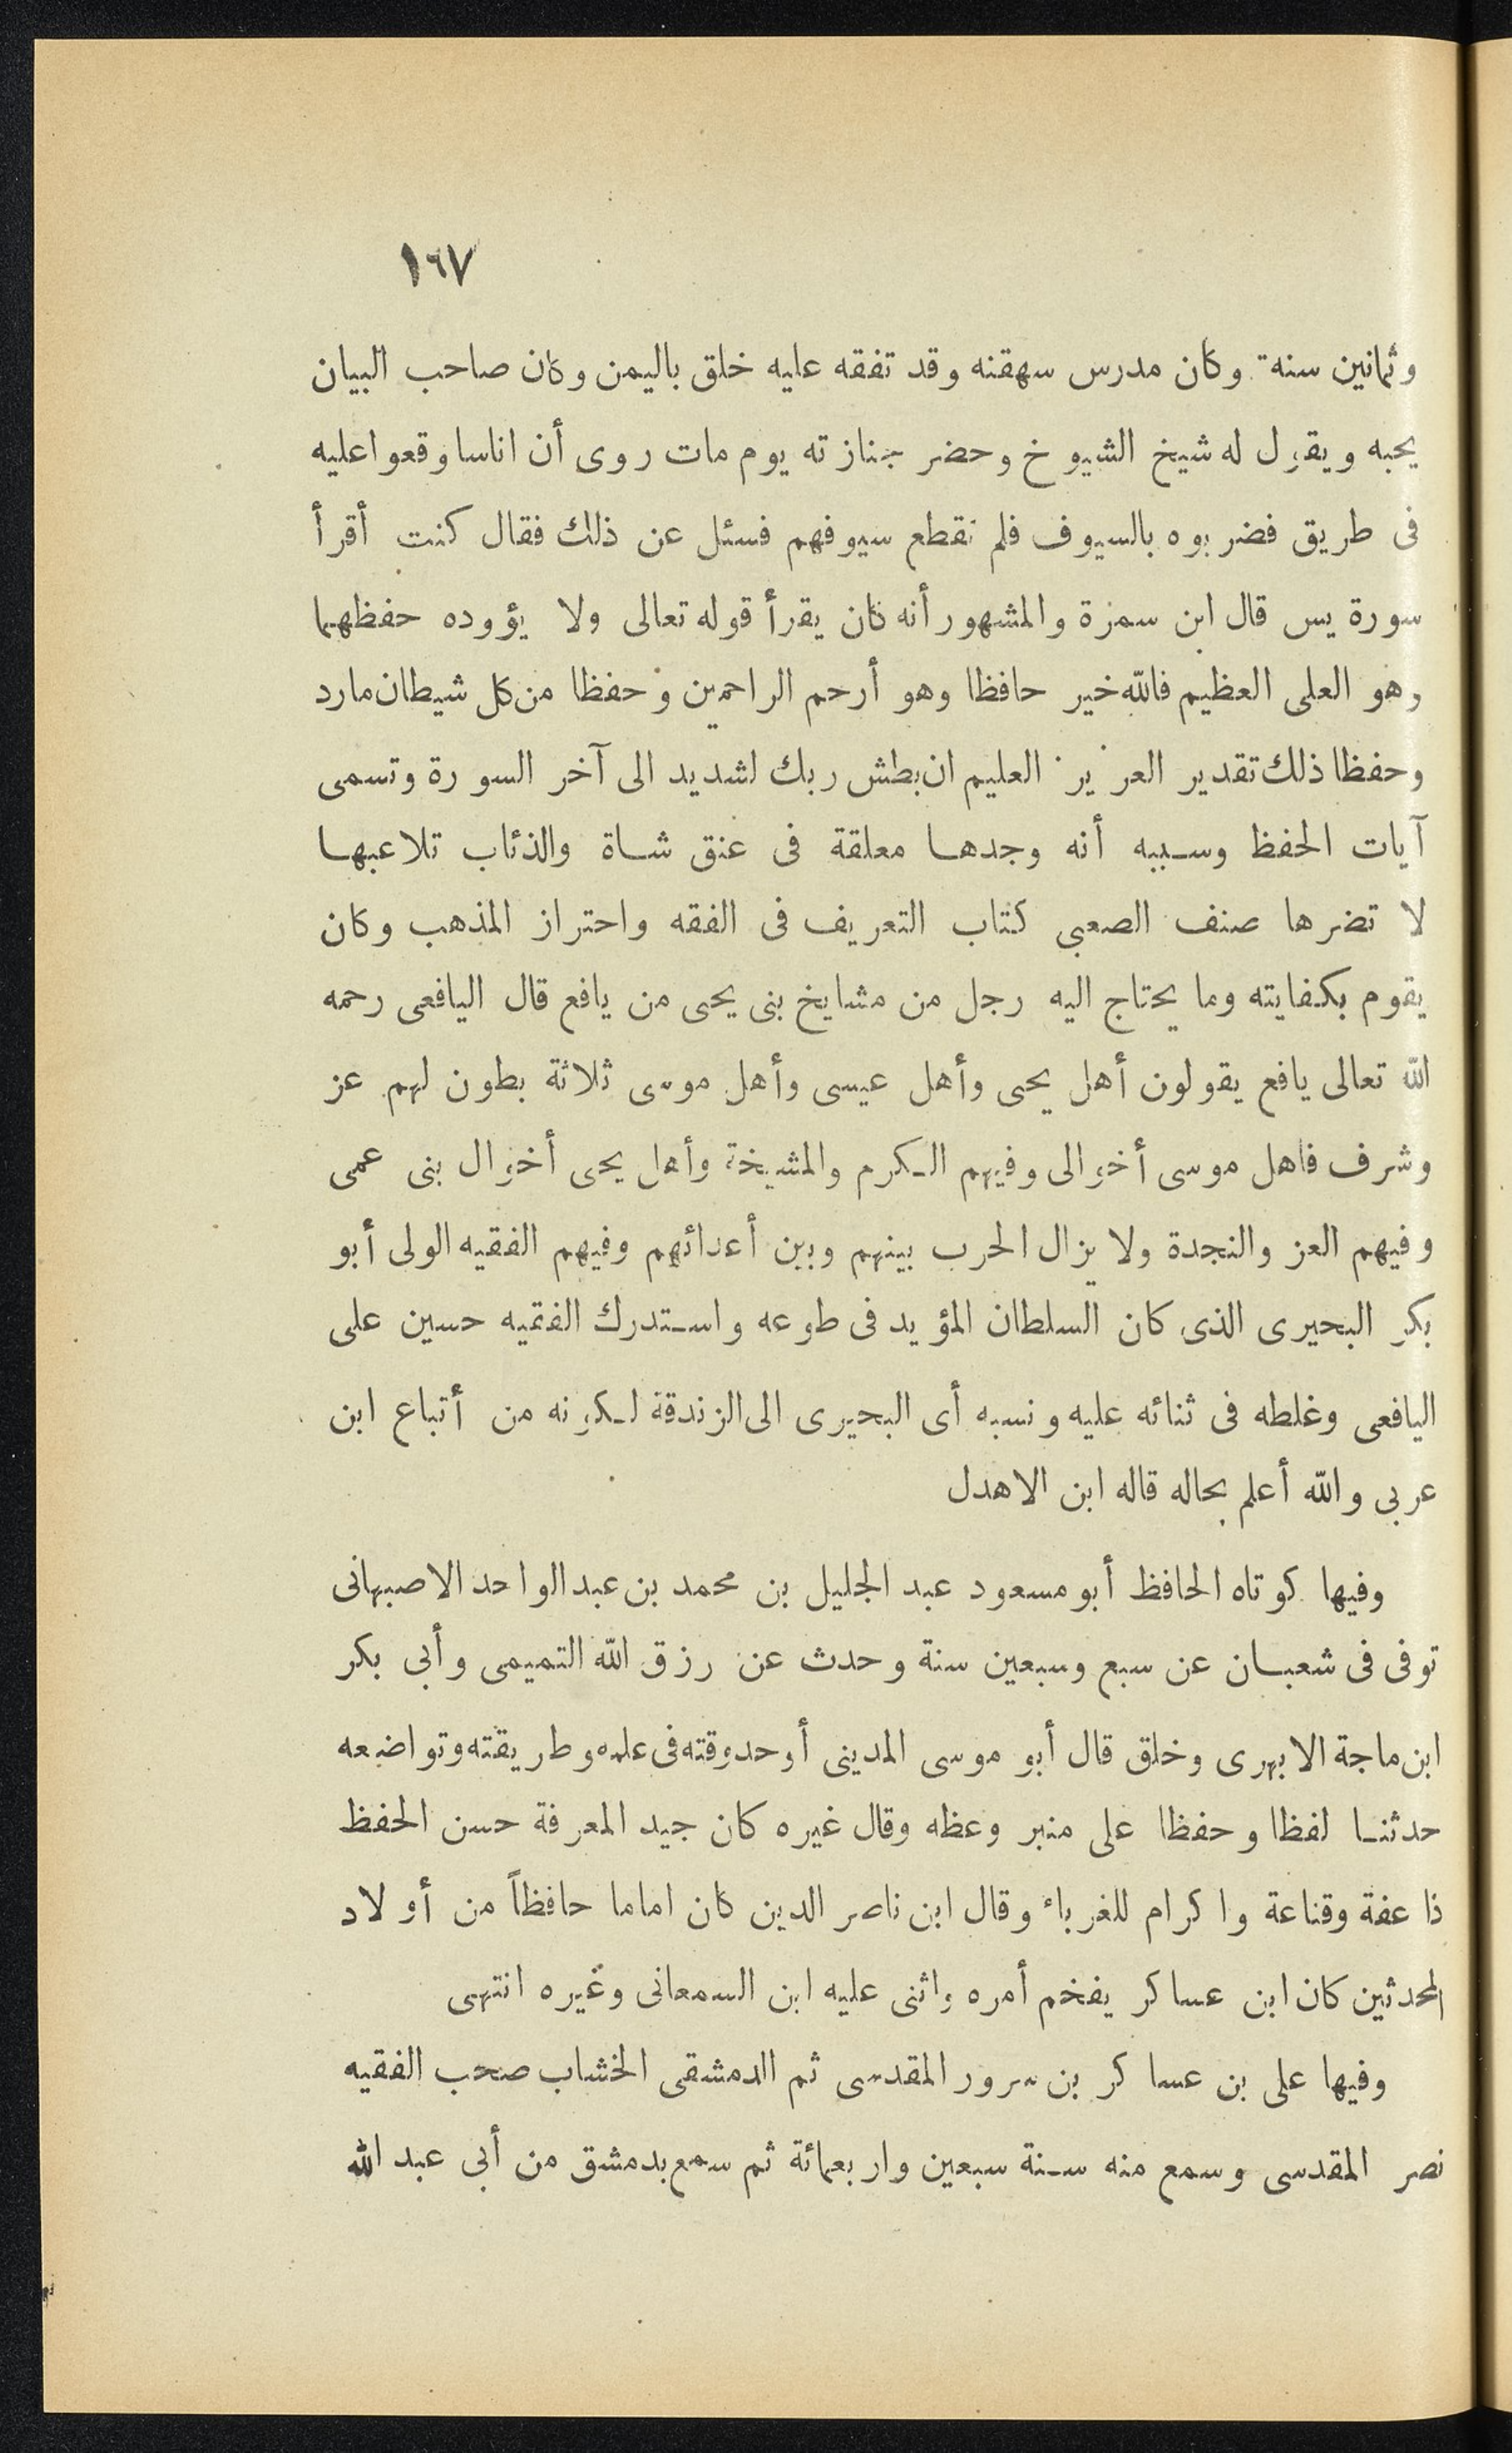 ١٦٧
وثمانين سنة وكان مدرس سهقنه وقد تفقه عليه خلق باليمن وكان صاحب البيان
يحبه ويقول له شيخ الشيوخ وحضر جنازته يوم مات روى أن اناسا وقعوا عليه
فى طريق فضربوه بالسيوف فلم تقطع سيوفهم فسئل عن ذلك فقال كنت أقرأ
سورة يس قال ابن سمرة والمشهور أنه كان يقرأ قوله تعالى ولا يؤوده حفظهما
وهو العلى العظيم فالله خير حافظا وهو أرحم الراحمين وحفظا من كل شيطان مارد
وحفظا ذلك تقدير العزيز العليم ان بطش ربك لشديد الى آخر السورة وتسمى
آيات الحفظ وسببه أنه وجدها معلقة فى عنق شاة والذئاب تلاعبها
لا تضرها صنف الصعبى كتاب التعريف فى الفقه واحتراز المذهب وكان
يقوم بكفايته وما يحتاج اليه رجل من مشايخ بنى يحيى من يافع قال اليافعى رحمه
الله تعالى يافع يقولون أهل يحيى وأهل عيسى وأهل موسى ثلاثة بطون لهم عز
وشرف فاهل موسى أخوالى وفيهم الكرم والمشيخة وأهل يحيى أخوال بنى عمى
وفيهم العز والنجدة ولا يزال الحرب بينهم وبين أعدائهم وفيهم الفقيه الولى أبو
بكر البحيرى الذى كان السلطان المؤيد فى طوعه واستدرك الفقيه حسين على
اليافعى وغلطه فى ثنائه عليه ونسبه أى البحيرى الى الزندقة لكونه من أتباع ابن
عربى والله أعلم بحاله قاله ابن الاهدل
وفيها كوتاه الحافظ أبو مسعود عبد الجليل بن محمد بن عبد الواحد الاصبهانى
توفى فى شعبان عن سبع وسبعين سنة وحدث عن رزق الله التميمى وأبى بكر
ابن ماجة الابهرى وخلق قال أبو موسى المدينى أوحد وقته فى علمه وطريقته وتواضعه
حدثنا لفظا وحفظا على منبر وعظه وقال غيره كان جيد المعرفة حسن الحفظ
ذا عفة وقناعة واكرام للغرباء وقال ابن ناصر الدين كان اماما حافظاً من أولاد
المحدثين كان ابن عساكر يفخم أمره واثنى عليه ابن السمعانى وغيره انتهى
وفيها على بن عساكر بن سرور المقدسى ثم الدمشقى الخشاب صحب الفقيه
نصر المقدسى وسمع منه سنة سبعين واربعمائة ثم سمع بدمشق من أبى عبد الله